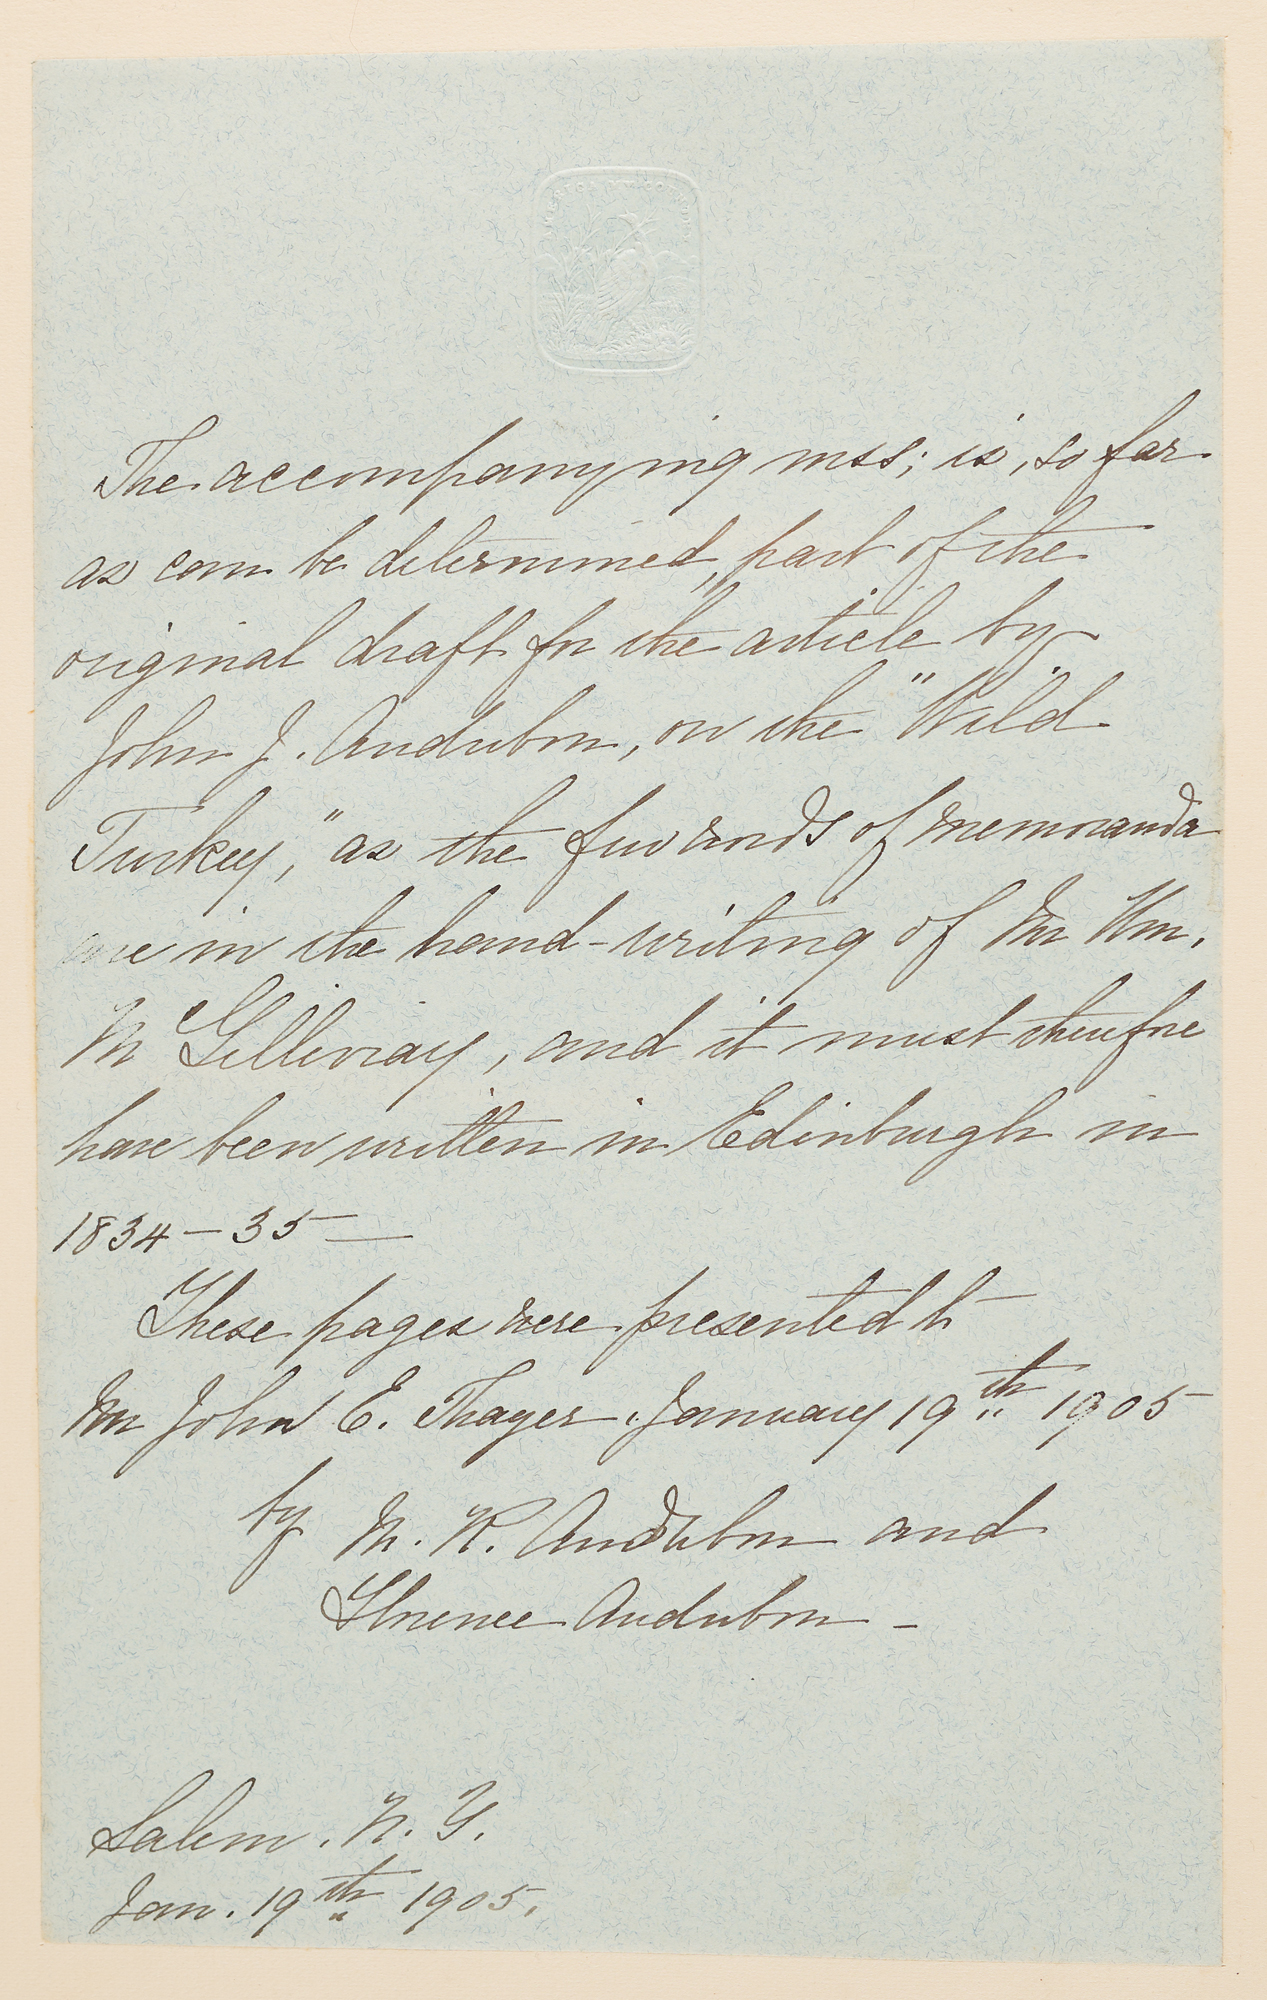 The accompanying mss; is, so far
as can be determined, part of the
original draft for the article by
John J. Audubon, on the "Wild
Turkey," as the few words of memoranda
are in the hand-writing of Mr Wm.
McGillivray, and it must therefore
have been written in Edinburgh in
1834-35—
These pages were presented to
Mr John E. Thayer, January 19th 1905
by M. R. Audubon and
Florence Audubon -
Salem. N. Y.
Jan. 19th 1905.